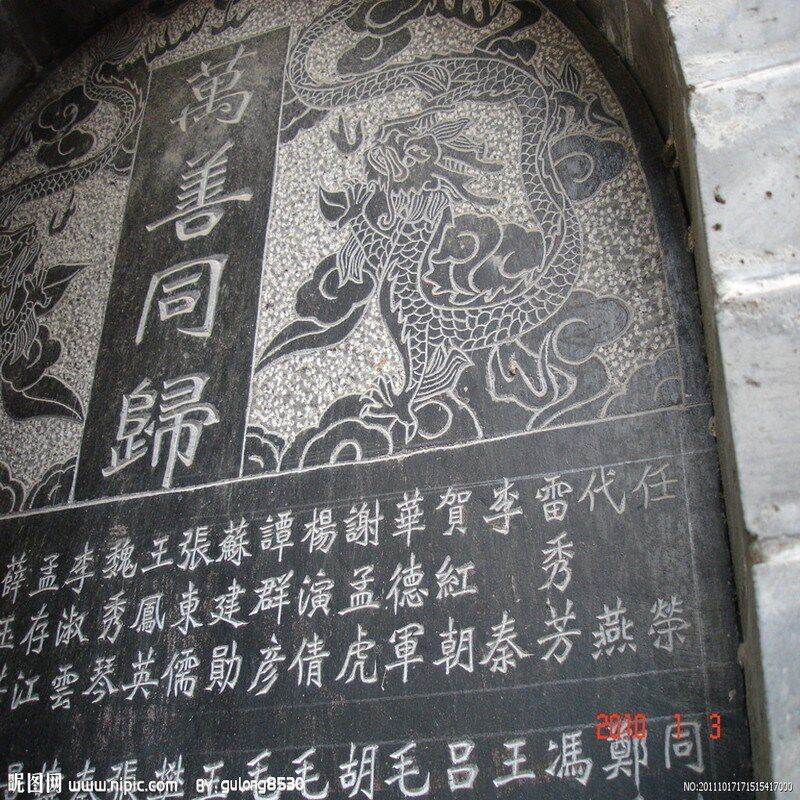 萬善同歸
任榮
代燕
雷秀芳
李秦
賀紅朝
華德軍
謝孟虎
楊演倩
譚群彥
蘇建勛
張東儒
王鳳英
魏秀琴
李淑雲
孟存江
薛
同
鄭
馮
王
呂
毛
胡
毛
毛
王
樊
張
2010 1 3
昵图网 www.nipic.com BY:gulong8530
NO:20111017171515417000